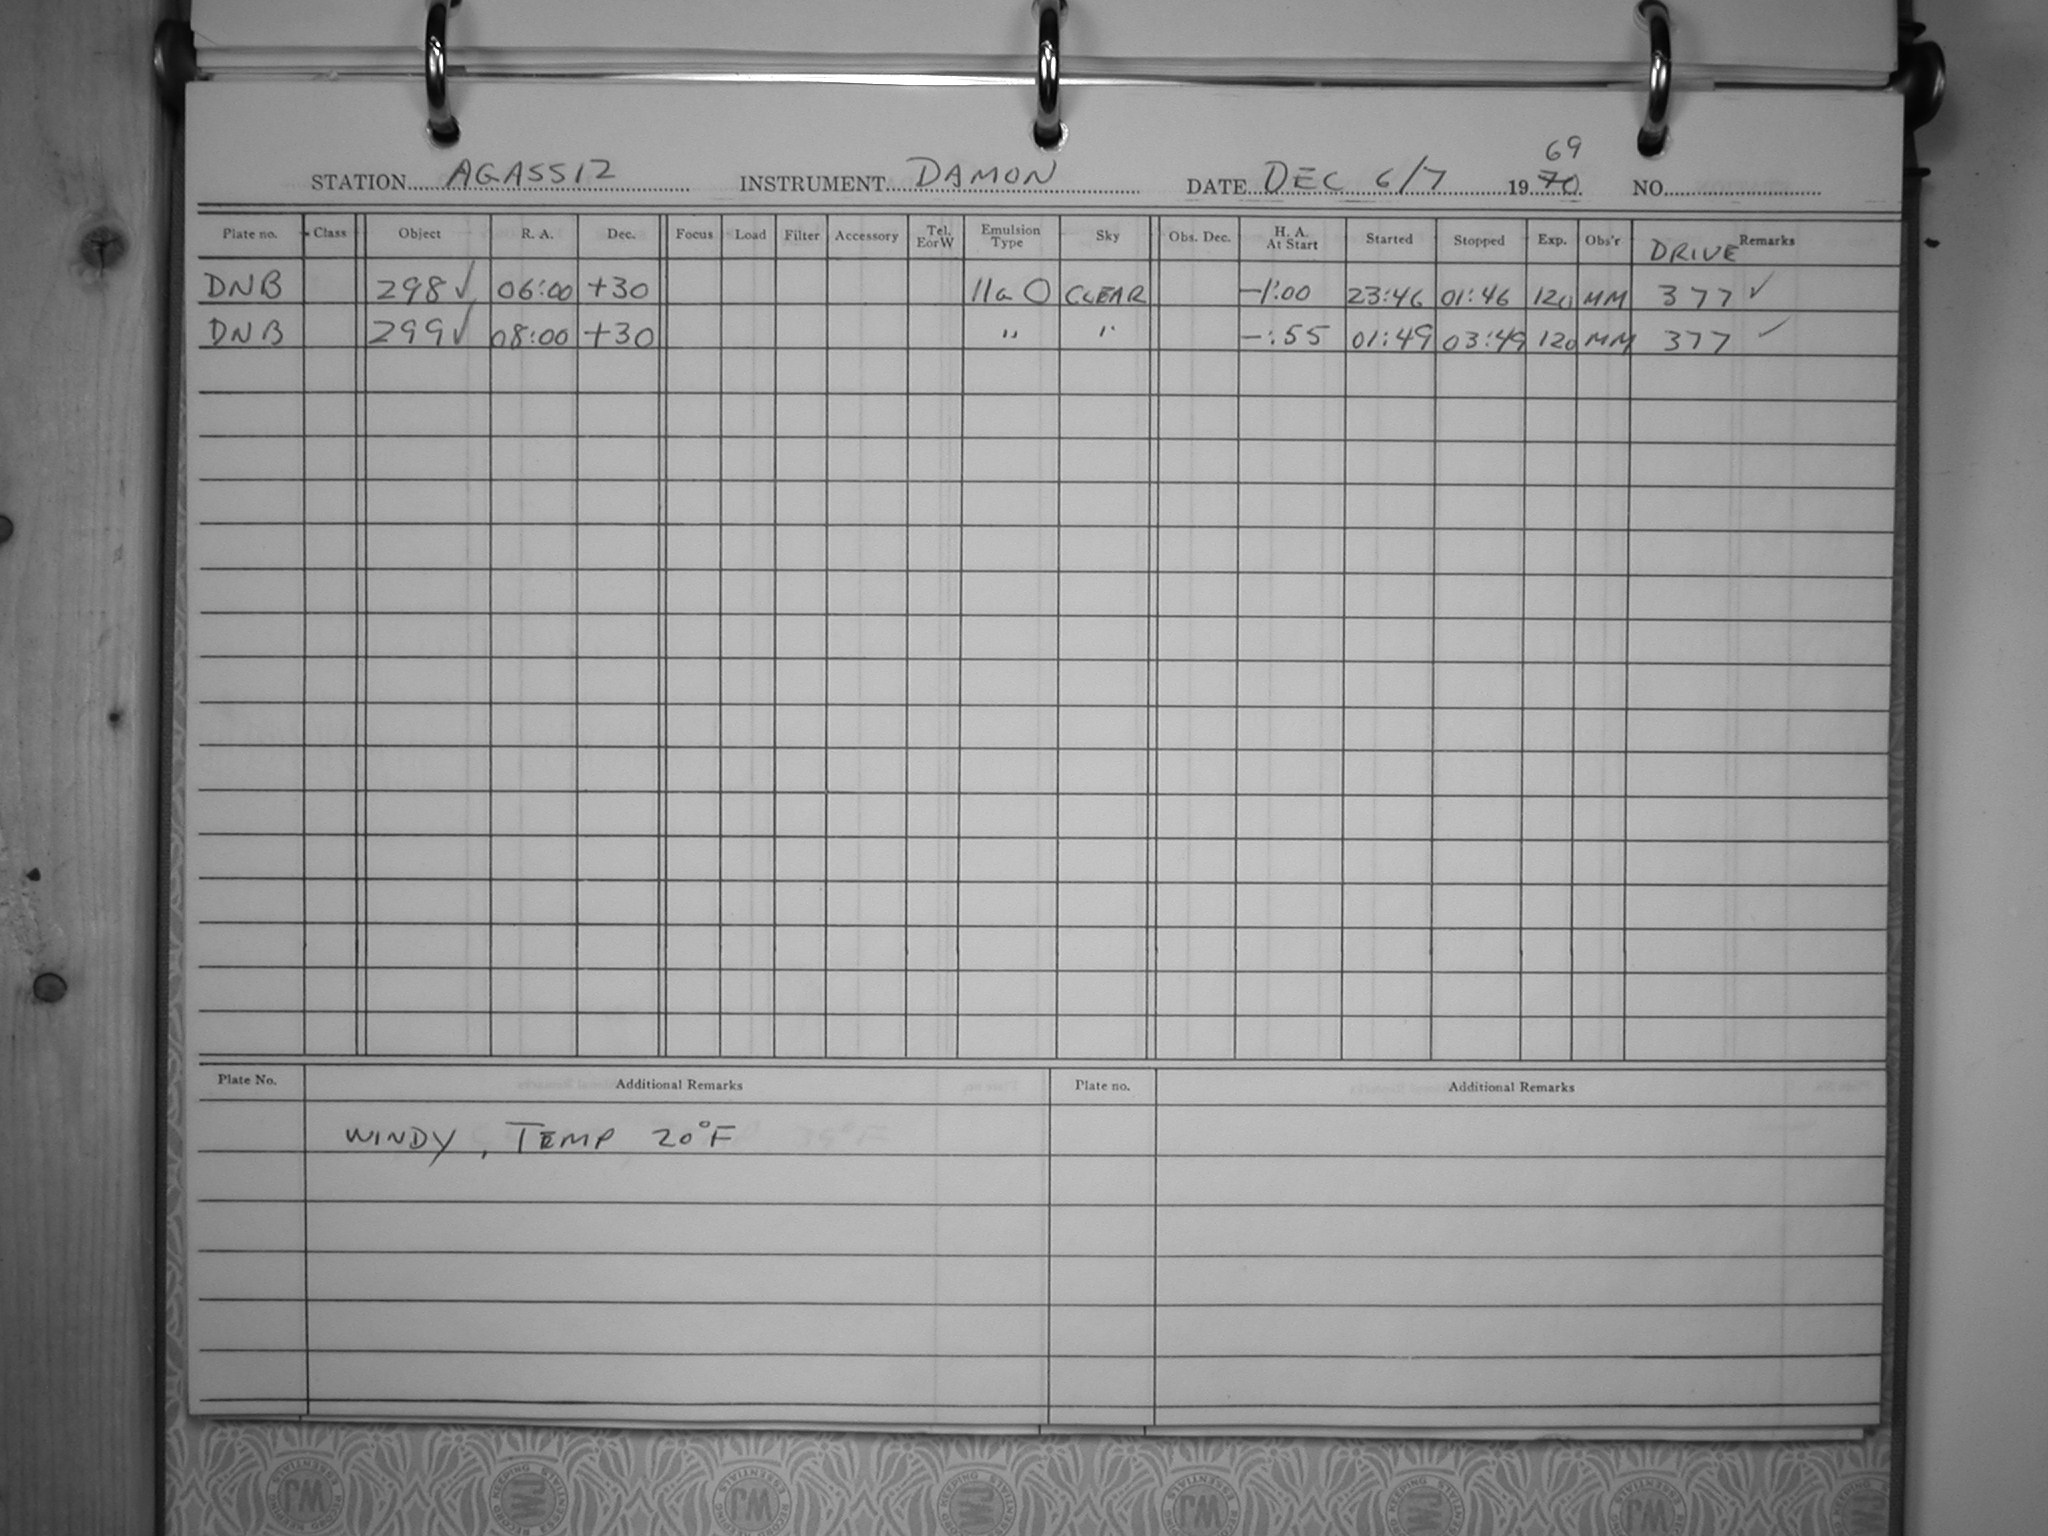 69
STATION AGASSIZ INSTRUMENT DAMON DATE DEC 6/7 19 70 NO.
Plate no. Class Object R. A. Dec. Focus Load Filter Accessory Tel. EorW Emulsion Type Sky Obs. Dec. H. A. At Start Started Stopped Exp. Obs'r DRIVE Remarks
DNB 298 ✓ 06:00 +30 IIa O CLEAR -1:00 23:46 01:46 120 MM 377 ✓
DNB 299 ✓ 08:00 +30 " " -:55 01:49 03:49 120 MM 377 ✓
Plate No. Additional Remarks Plate no. Additional Remarks
WINDY, TEMP 20°F
WJ WJ WJ WJ WJ WJ WJ